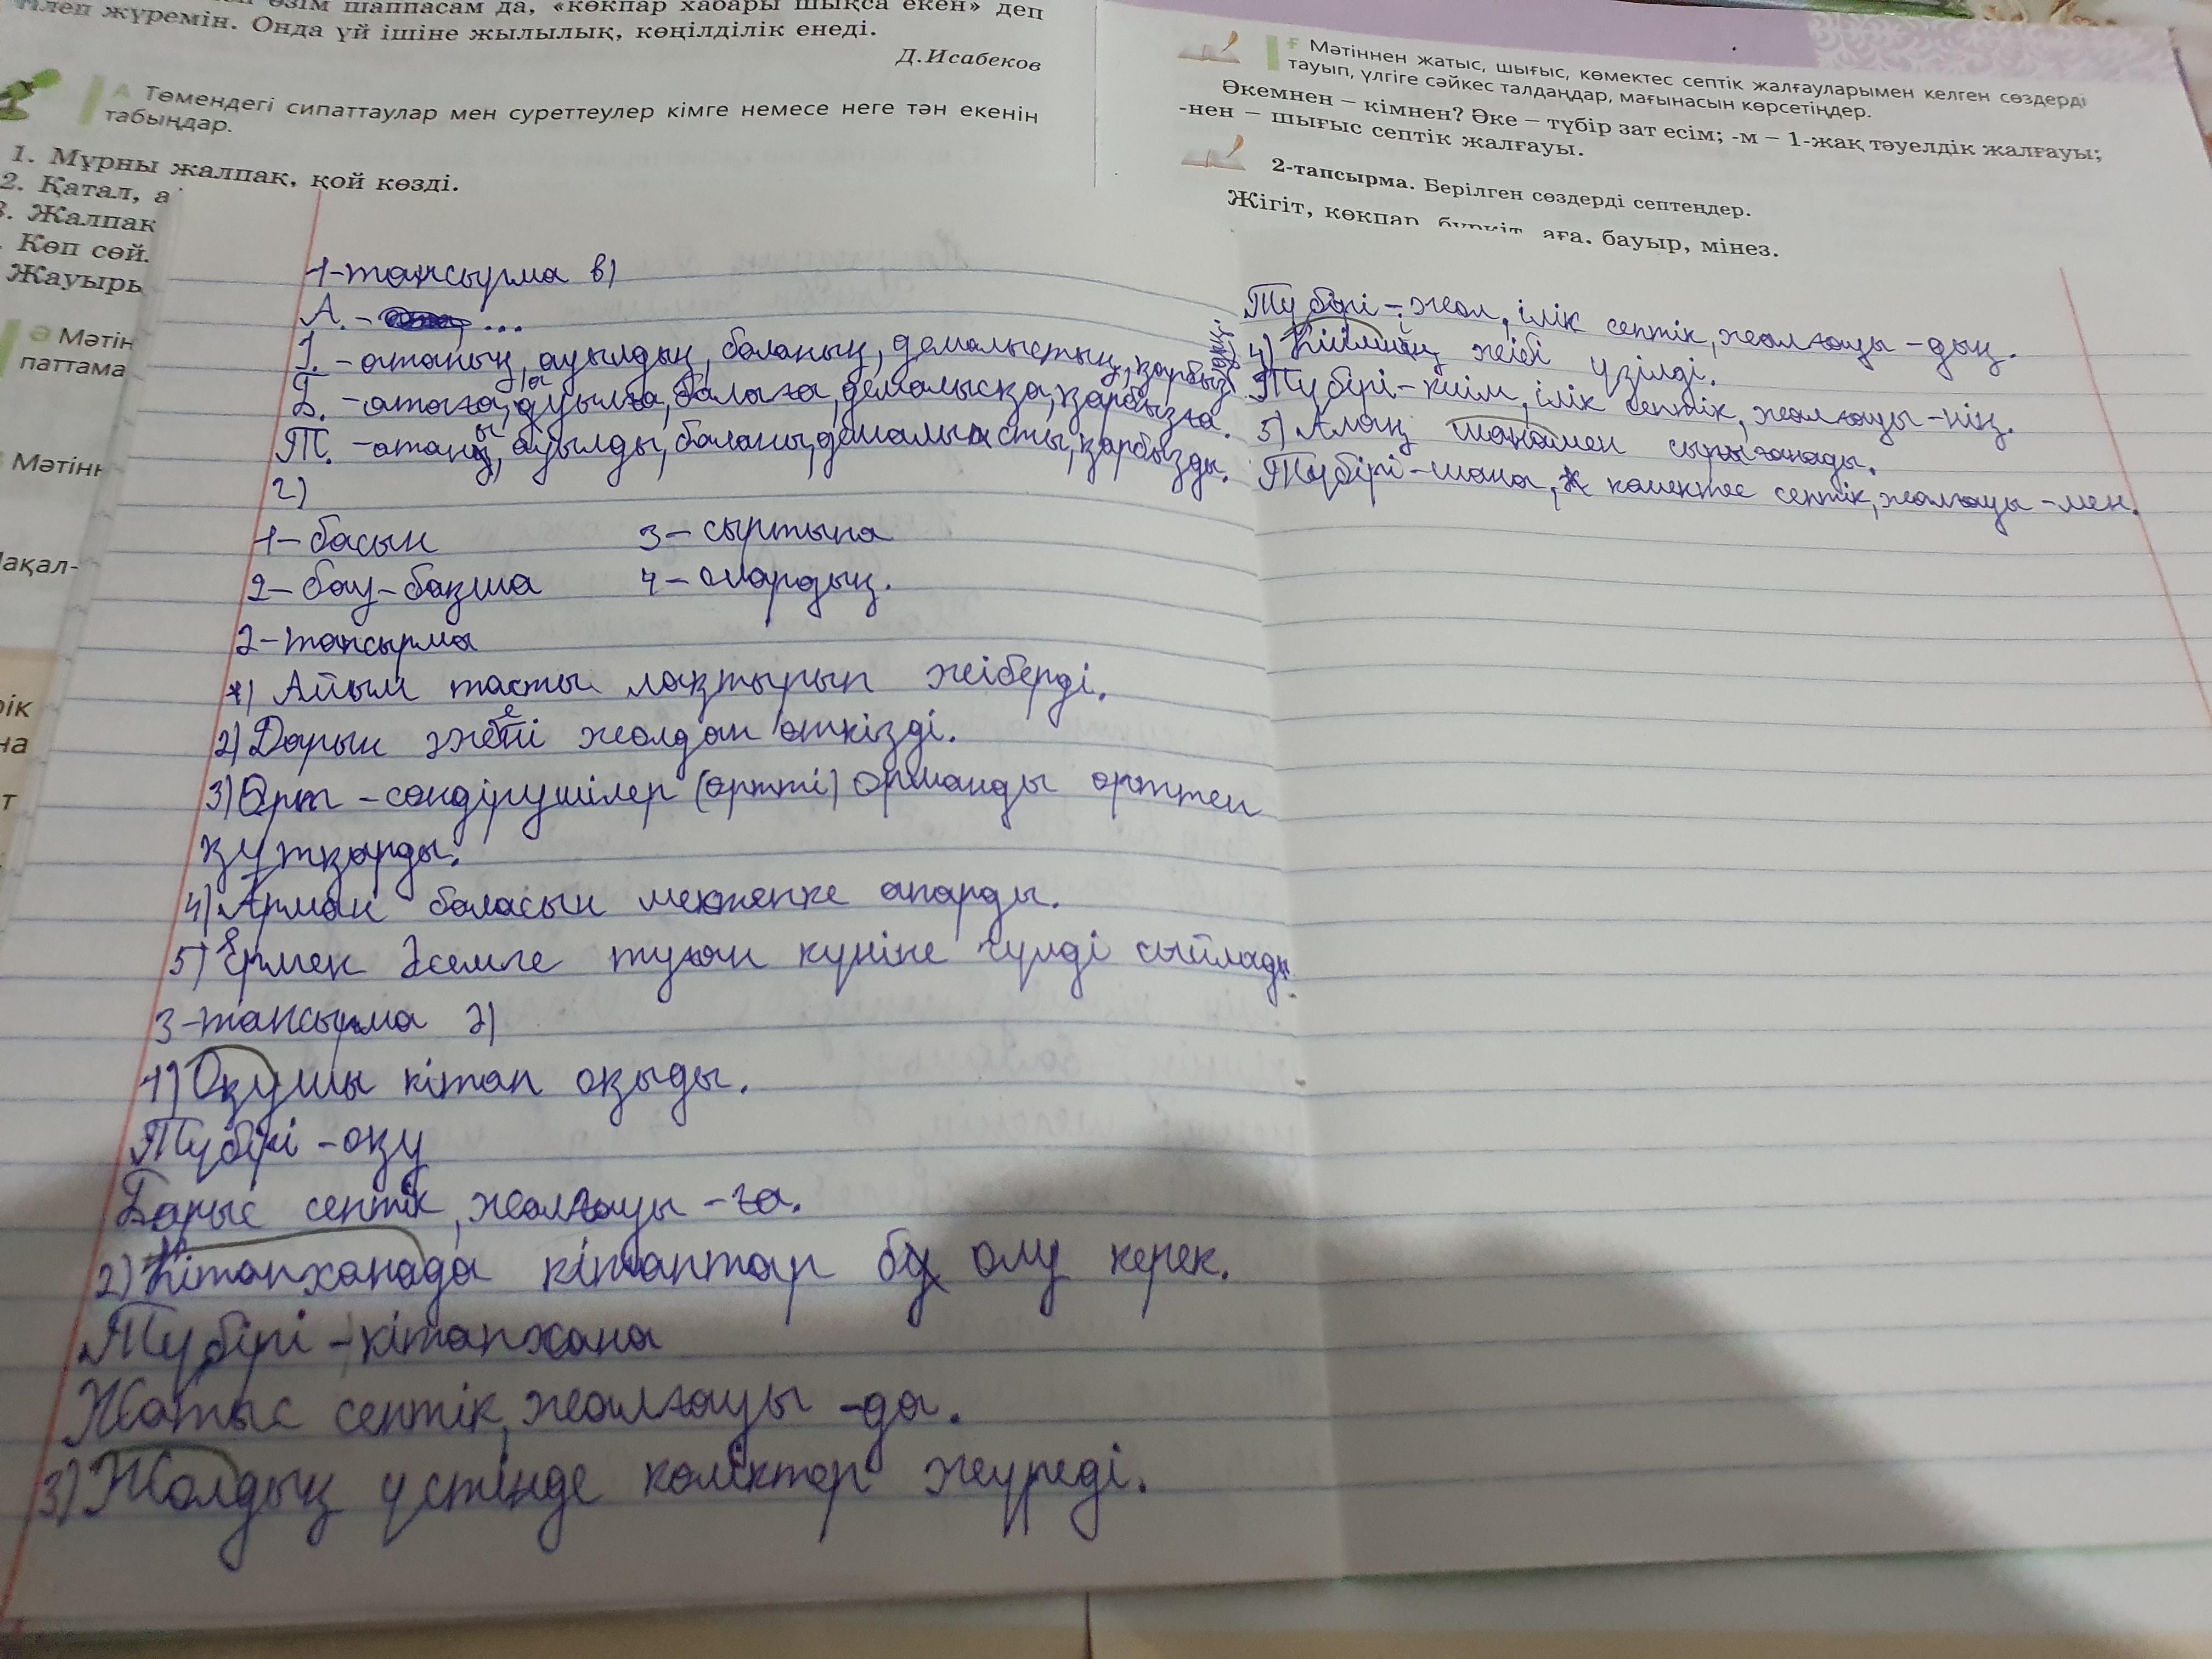 өзім шаппасам да, «көкпар хабары шықса екен» деп
тілеп жүремін. Онда үй ішіне жылылық, көңілділік енеді.
Д.Исабеков
А Төмендегі сипаттаулар мен суреттеулер кімге немесе неге тән екенін
табыңдар.
1. Мұрны жалпақ, қой көзді.
2. Қатал, а
3. Жалпақ
. Көп сөй
Жауыры
Ә Мәтін
паттама
Мәтінн
ақал-
рік
на
т
Ғ Мәтіннен жатыс, шығыс, көмектес септік жалғауларымен келген сөздерді
тауып, үлгіге сәйкес талдаңдар, мағынасын көрсетіңдер.
Әкемнен – кімнен? Әке – түбір зат есім; -м – 1-жақ тәуелдік жалғауы;
-нен – шығыс септік жалғауы.
2-тапсырма. Берілген сөздерді септеңдер.
Жігіт, көкпар, бүркіт, аға, бауыр, мінез.
1-тапсырма в)
А. - ...
І. - атаның, ауылдың, баланың, демалыстың, қарбыздың.
Б. - атаға, ауылға, балаға, демалысқа, қарбызға.
Т. - атаны, ауылды, баланы, демалысты, қарбызды.
г)
1- басын 3- сыртына
2- бау-бақша 4- олардың.
2-тапсырма
1) Айым тасты лақтырып жіберді.
2) Дарын әжені жолдан өткізді.
3) Өрт - сөндірушілер (өртті) орманды өрттен
құтқарды.
4) Арман баласын мектепке апарды.
5) Ермек Әсемге туған күніне гүлді сыйлады.
3-тапсырма ә)
1) Оқушы кітап оқыды.
Түбірі - оқу
Барыс септік, жалғауы - ға.
2) Кітапханада кітаптар көп болу керек.
Түбірі - кітапхана
Жатыс септік, жалғауы -да.
3) Жолдың үстінде көліктер жүреді.
Түбірі - жол, ілік септік, жалғауы - дың.
4) Киімнің жібі үзілді.
Түбірі - киім, ілік септік, жалғауы - нің.
5) Алаң шанамен сырғанады.
Түбірі - шана, көмектес септік, жалғауы - мен.